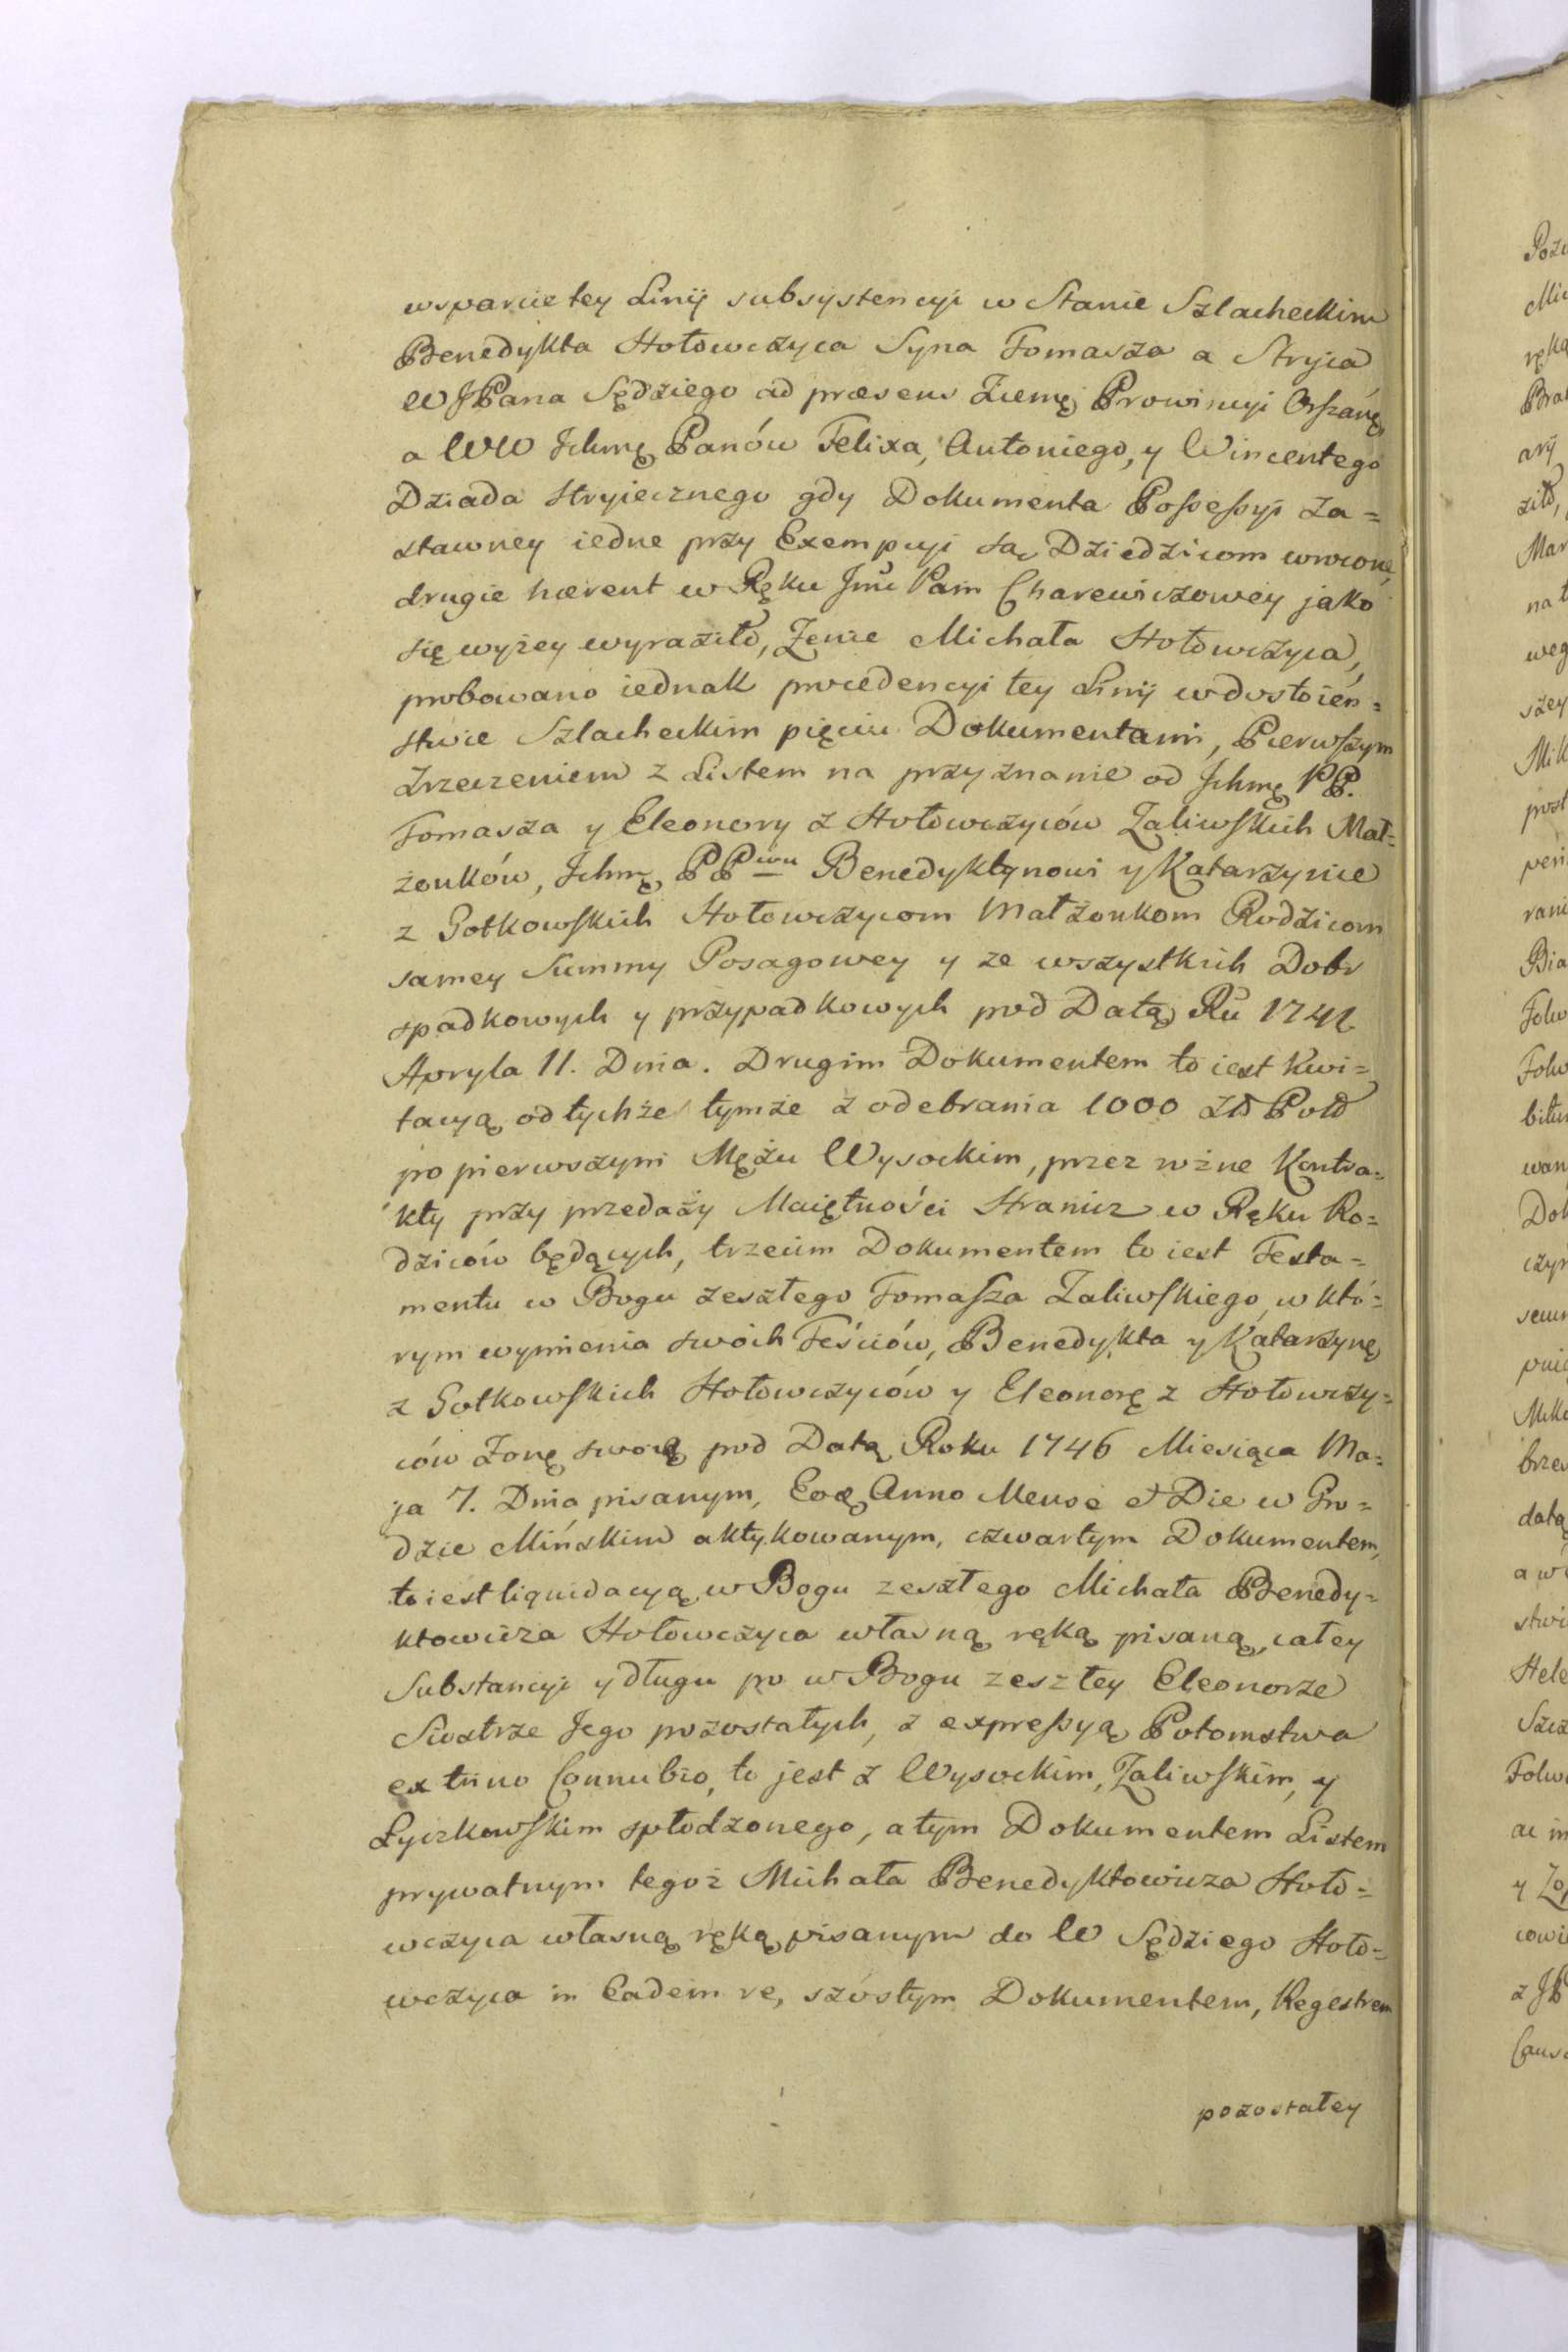 wsparcie tey Linij subsystencyi w Stanie Szlacheckim
Benedykta Hołowczyca Syna Tomasza a Stryia
W JPana Sędziego ad præsens Ziemſ Prowincyi Orszánſ
a WW Ichmę Panów Felixa, Antoniego, y Wincentego
Dziada stryiecznego gdy Dokumenta Possessyi Za=
stawney iedne przy Exempcyi są Dziedzicom wrócone,
drugie hærent w Ręku Jmć Pani Charewiczowey jako
się wyżey wyraziło, Żenie Michała Hołowczyca,
probowano iednak procedencyi tey Linij w dostoień=
stwie Szlacheckim pięciu Dokumentami, Pierwszym
Zrzeczeniem z Listem na przyznanie od Ichmę PP.
Tomasza y Eleonory z Hołowczyców Zaliwskich Mał=
żonków, Ichmę PPwu Benedyktynowi y Katarzynie
z Gołkowskich Hołowczycom Małżonkom Rodzicom
samey Summy Posagowey y ze wszystkich Dobr
spadkowych y przypadkowych pod Datą Ru 1742
Apryla 11. Dnia. Drugim Dokumentem to iest Kwi=
tacyą od tychże tymże z odebrania 1000 Zł Pol
po pierwszym Mężu Wysockim, przez rożne Kontra=
kty przy przedaży Maiętności Stranicz w Ręku Ro=
dziców będących, trzecim Dokumentem to iest Testa=
mentu w Bogu zeszłego Tomasza Zaliwskiego, w któ=
rym wymienia swoich Teściów, Benedykta y Katarzynę
z Gołkowskich Hołowczyców y Eleonorę z Hołowczy=
ców Żonę swoią pod Datą Roku 1746 Miesiąca Ma=
ja 7. Dnia pisanym, Eoq Anno Mense et Die w Gro=
dzie Mińskim aktykowanym, czwartym Dokumentem,
to iest liquidacyą w Bogu zeszłego Michała Benedy=
ktowicza Hołowczyca własną ręką pisaną, całey
Substancyi y długu po w Bogu zeszłey Eleonorze
Siostrze Jego pozostałych, z expressyą Potomstwa
ex trino Connubio, to jest z Wysockim, Zaliwskim, y
Łyczkowskim spłodzonego, a tym Dokumentem Listem
prywatnym tegoż Michała Benedyktowicza Hoło=
wczyca własną ręką pisanym do W Sędziego Hoło=
wczyca in Eadem re, szóstym Dokumentem, Regestrem
pozostałey